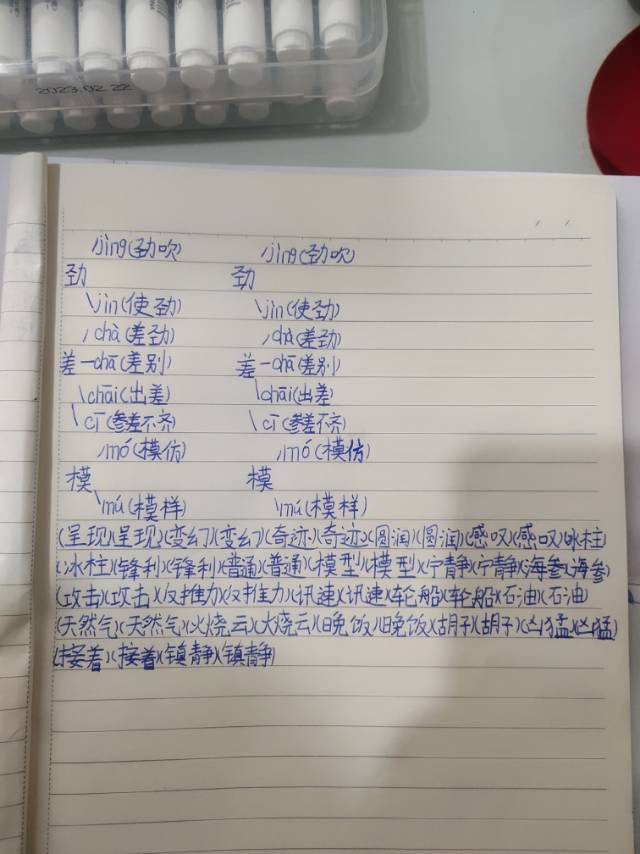 2023.02.22
jìng(劲吹) jìng(劲吹)
劲 劲
jìn(使劲) jìn(使劲)
chà(差劲) chà(差劲)
差 chā(差别) 差 chā(差别)
chāi(出差) chāi(出差)
cī(参差不齐) cī(参差不齐)
mó(模仿) mó(模仿)
模 模
mú(模样) mú(模样)
(呈现)(呈现)(变幻)(变幻)(奇迹)(奇迹)(圆润)(圆润)(感叹)(感叹)(冰柱)
(冰柱)(锋利)(锋利)(普通)(普通)(模型)(模型)(宁静)(宁静)(海参)(海参)
(攻击)(攻击)(反推力)(反推力)(讯速)(讯速)(轮船)(轮船)(石油)(石油)
(天然气)(天然气)(火烧云)(火烧云)(晚饭)(晚饭)(胡子)(胡子)(凶猛)(凶猛)
(接着)(接着)(镇静)(镇静)